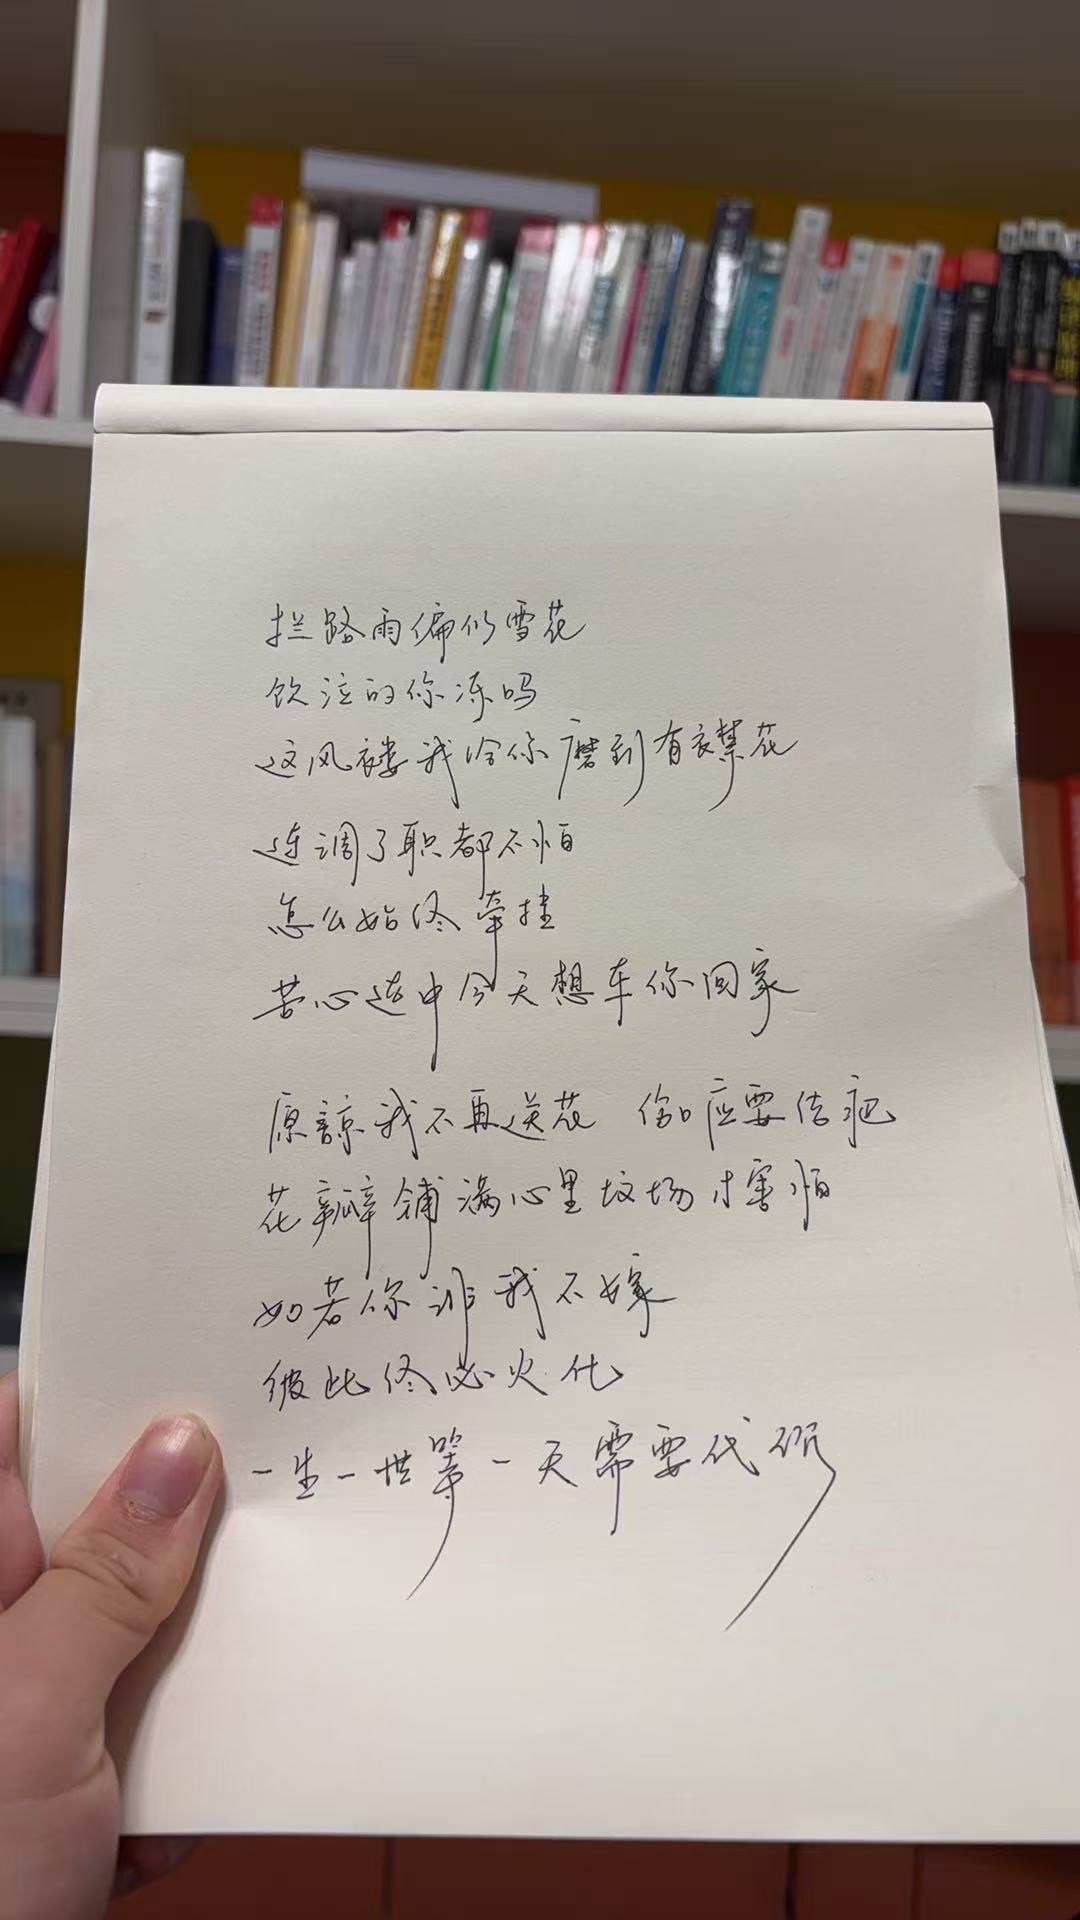 拦路雨偏似雪花
饮泣的你冻吗
这风褛我给你磨到有襟花
连调了职都不怕
怎么始终牵挂
苦心选中今天想车你回家
原諒我不再送花 伤口应要结疤
花瓣铺满心里坟场才害怕
如若你非我不嫁
彼此终必火化
一生一世等一天需要代价